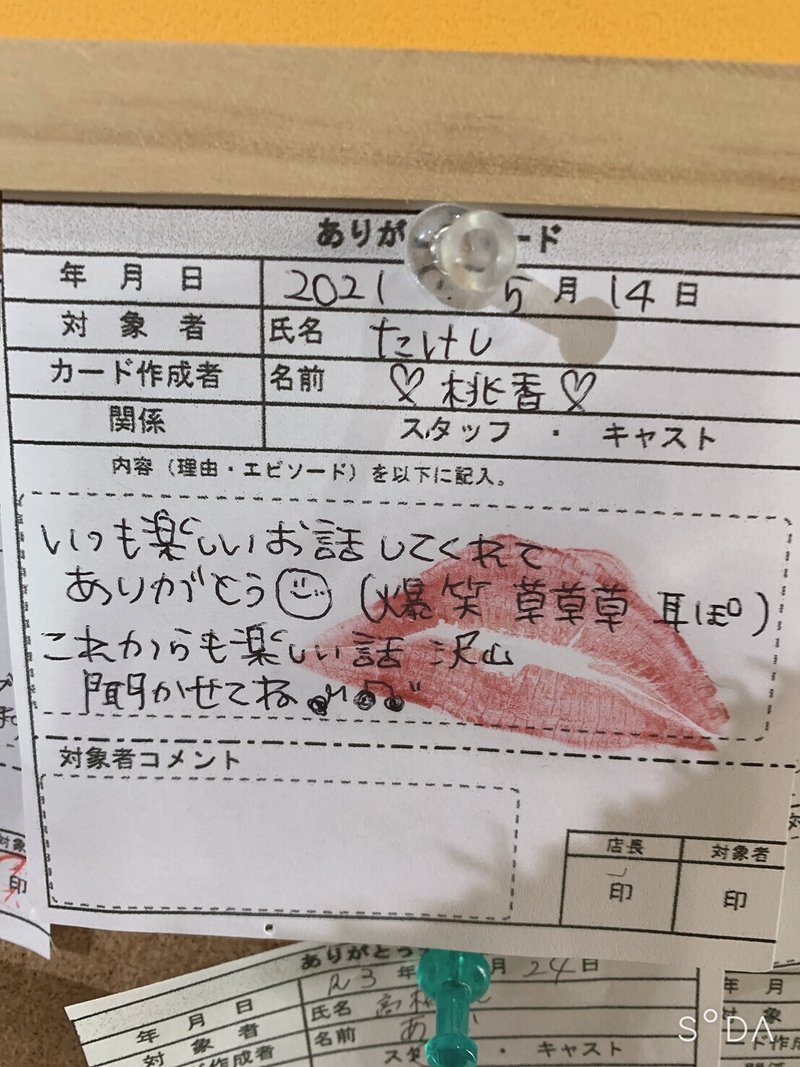 ありが ード
年月日 2021 5月14日
対象者 氏名 たけし
カード作成者 名前 ♡桃香♡
関係 スタッフ ・ キャスト
内容（理由・エピソード）を以下に記入。
いつも楽しいお話してくれて
ありがとう☺（爆笑 草草草 耳ぽ）
これからも楽しい話 沢山
聞かせてね
対象者コメント
店長 対象者
印 印
対象
印
ありがとう
年月日 R3年 月24日
対象者 氏名
カード作成者 名前 あ
スタ ・ キャスト
年 月
対象
カード作成
関係
SODA